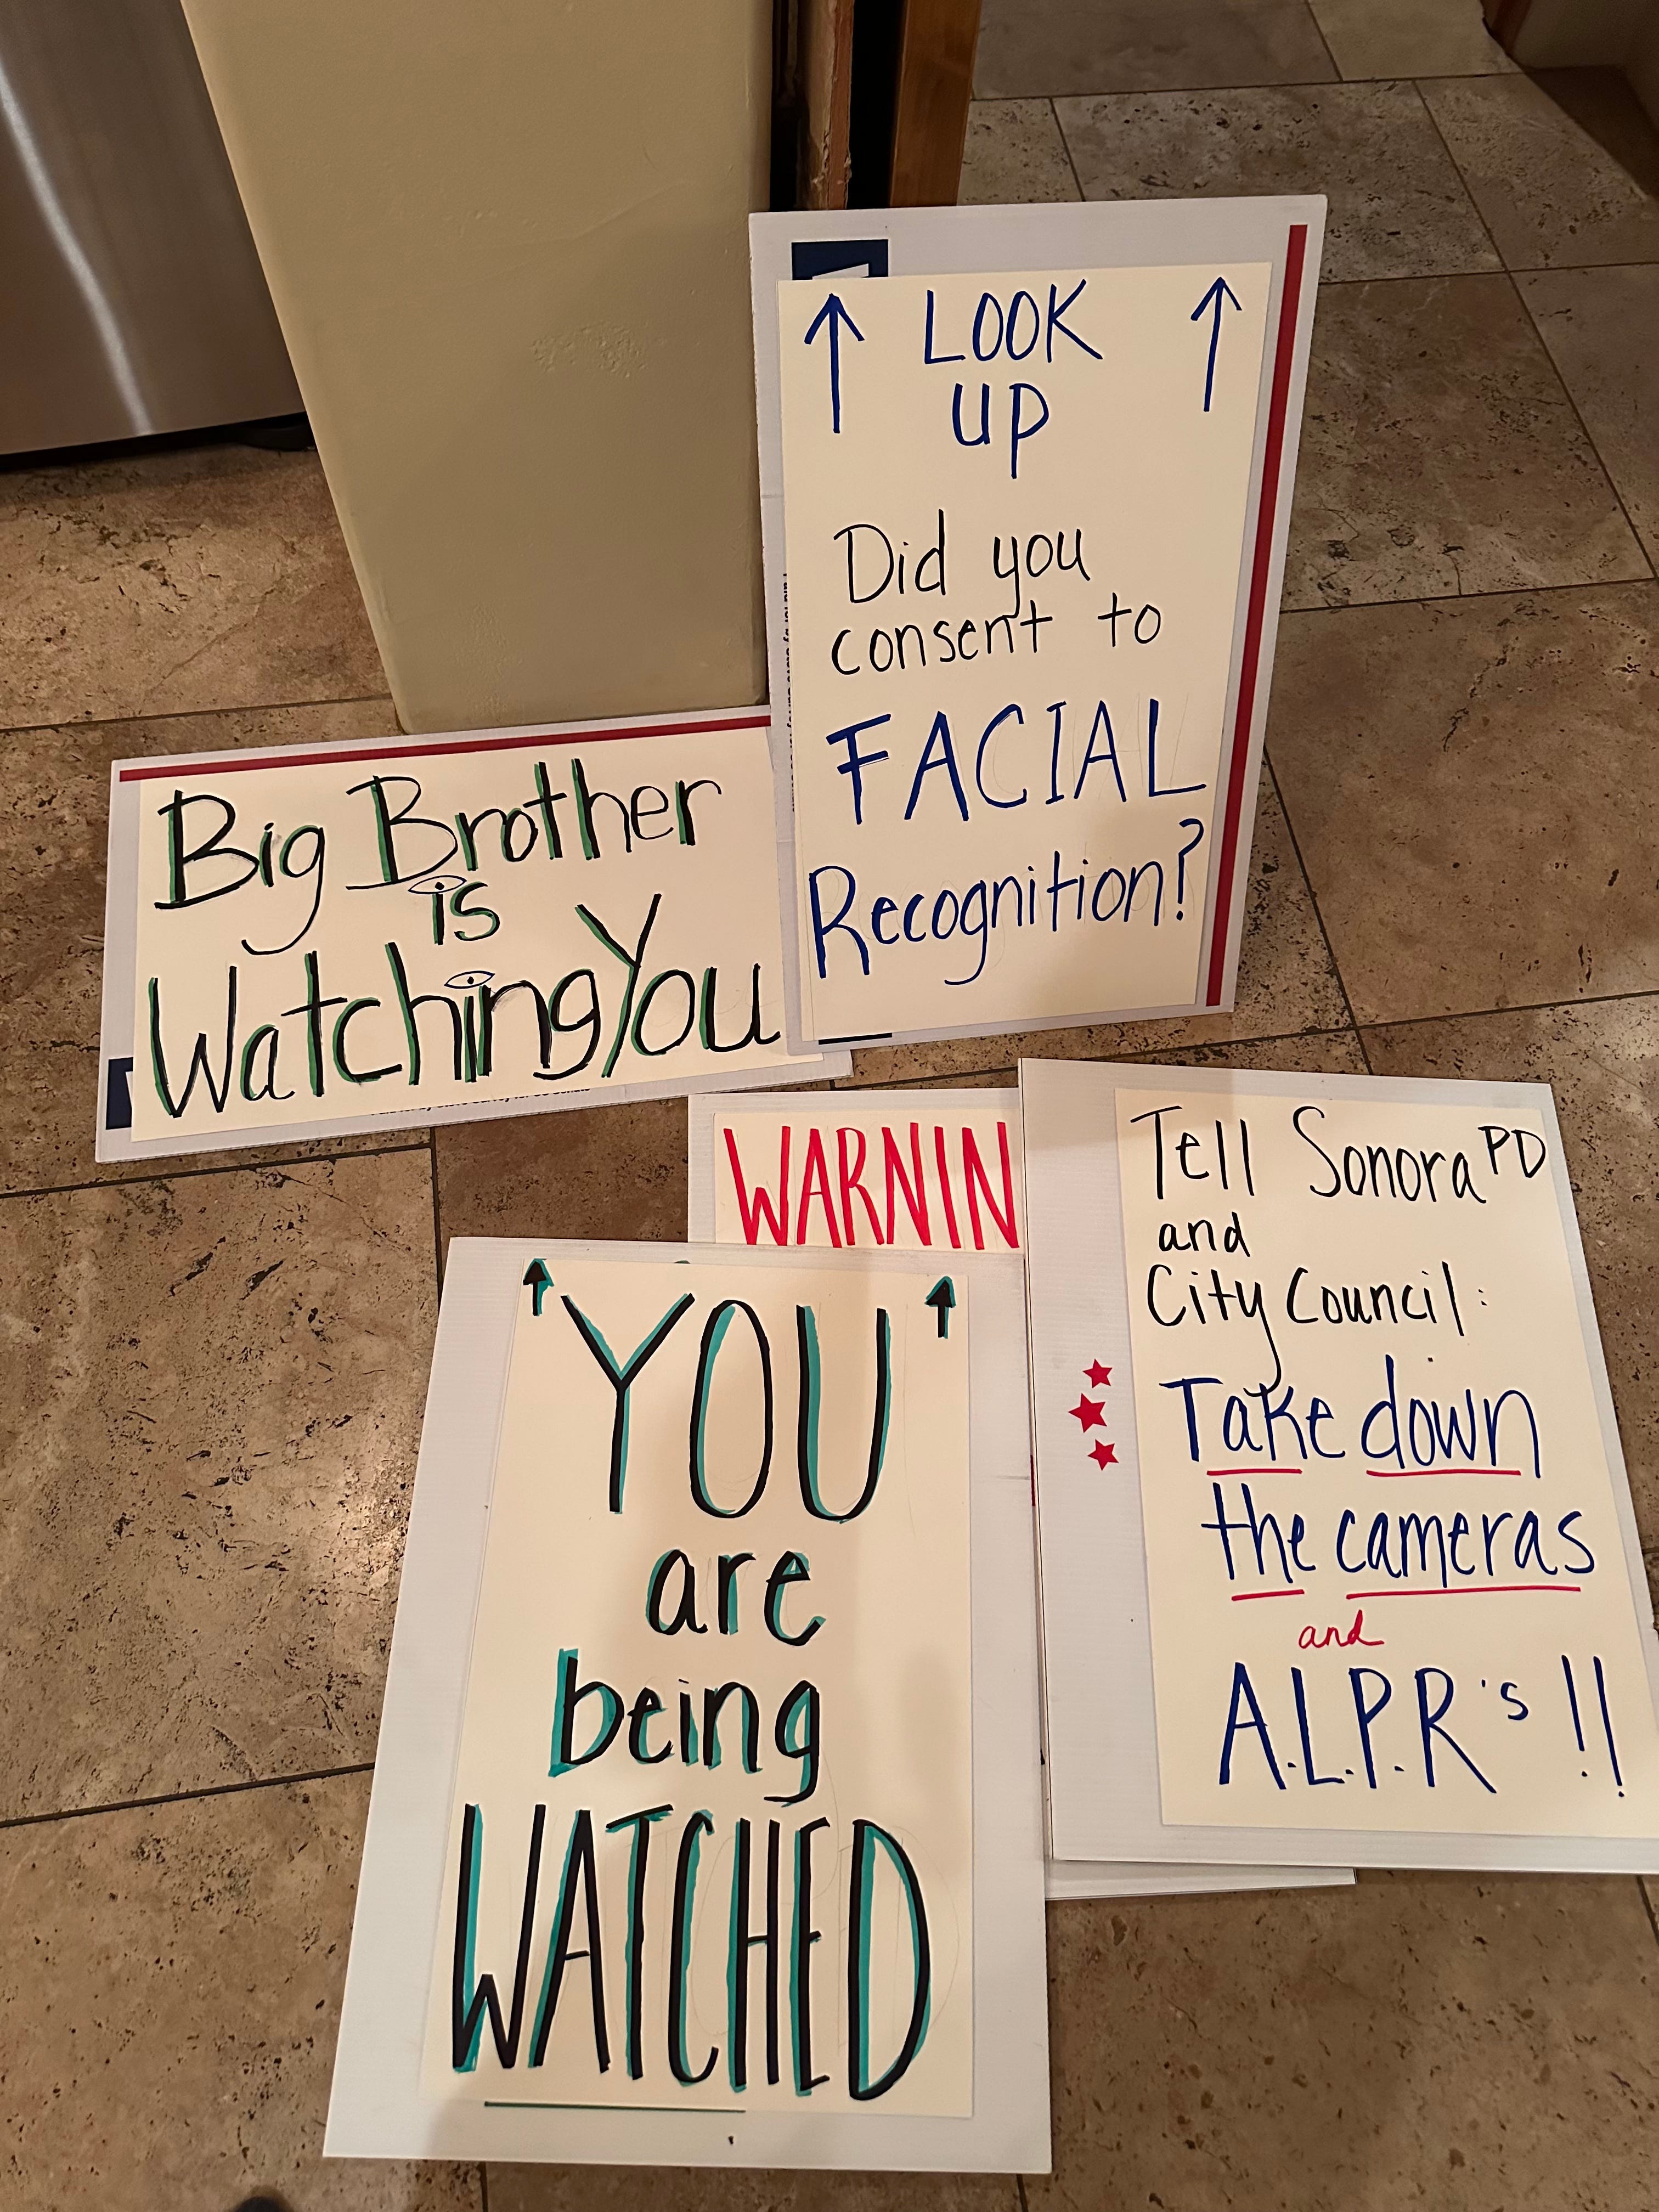 LOOK
UP
Did you
consent to
FACIAL
Recognition?
Big Brother
is
Watching You
WARNIN
Tell Sonora PD
and
City Council:
Take down
the cameras
and
A.L.P.R's !!
YOU
are
being
WATCHED